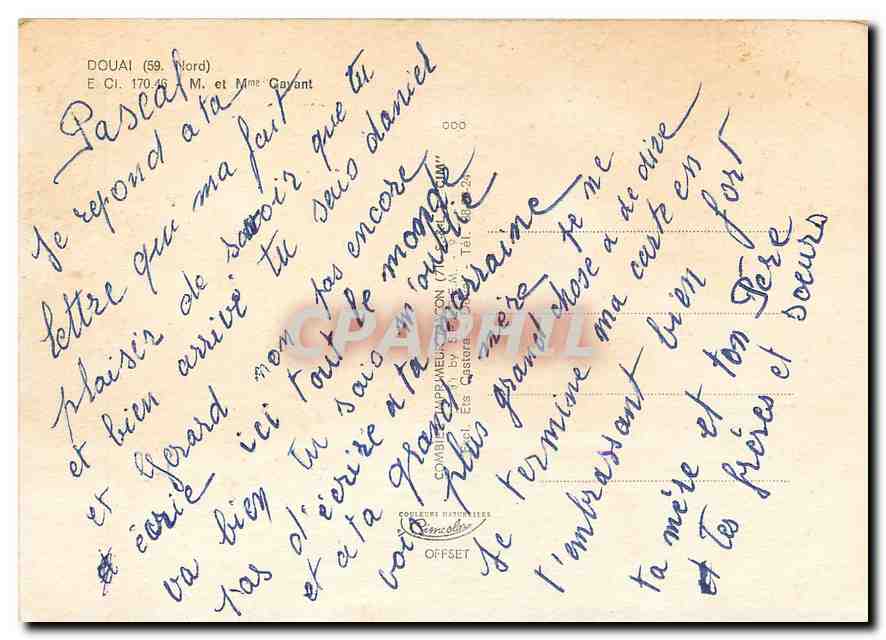 DOUAI (59. Nord)
E Cl. 170.46 M. et Mme Gayant
Pascal
Je repond a ta
lettre qui ma fait
plaisir de savoir que tu
et bien arrivé tu sais daniel
et Gerard mon pas encore
écrie ici tout le monde
va bien tu sais m'oublie
pas d'écrire a ta marraine
et a ta grand-mère je ne
voie plus grand chose a te dire
Je termine ma carte en
t'embrassant bien fort
ta mère et ton Père
et Tes frères et soeurs
COMBIER IMPRIMEUR MACON (71) "CIM"
Excl. Ets Castera Tél. 88
COULEURS NATURELLES
Cimcolor
OFFSET
CPAPHIL